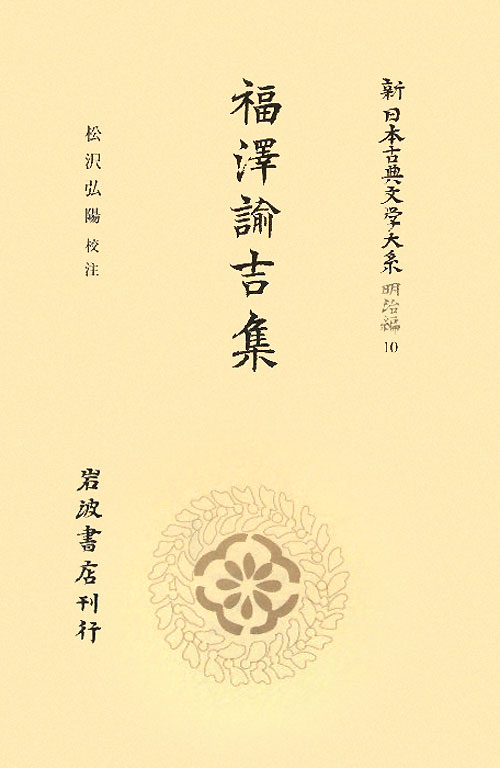 新日本古典文学大系 明治編 10
福澤諭吉集
松沢弘陽 校注
岩波書店刊行